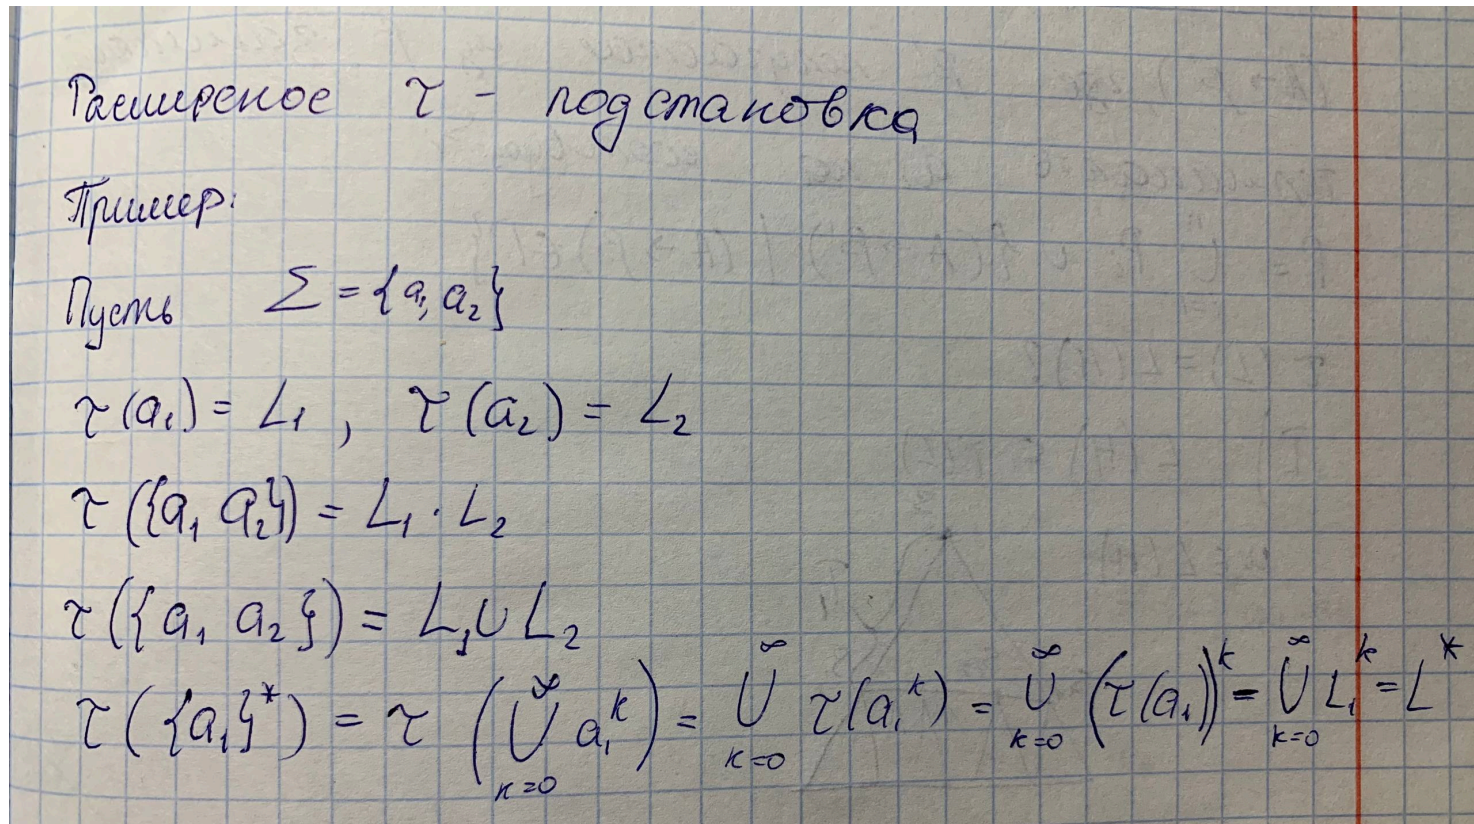 Расширеное τ - подстановка
Пример:
Пусть Σ = {a₁, a₂}
τ(a₁) = L₁ , τ(a₂) = L₂
τ({a₁ a₂}) = L₁ · L₂
τ({a₁ a₂}) = L₁ ∪ L₂
τ({a₁}*) = τ (⋃_{k=0}^{∞} a₁^k) = ⋃_{k=0}^{∞} τ(a₁^k) = ⋃_{k=0}^{∞} (τ(a₁))^k = ⋃_{k=0}^{∞} L₁^k = L*